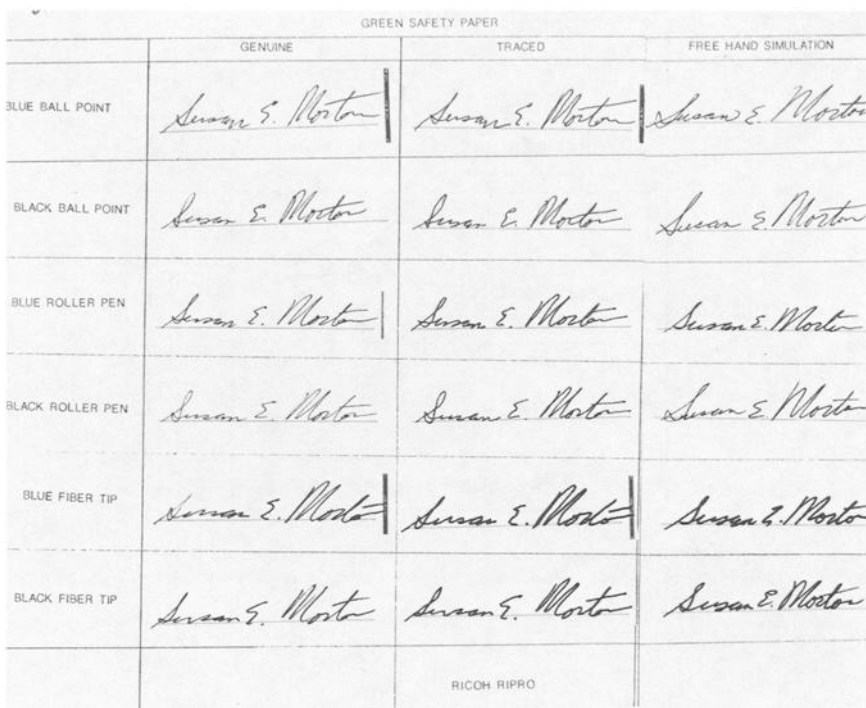 GREEN SAFETY PAPER
GENUINE TRACED FREE HAND SIMULATION
BLUE BALL POINT Susan E. Morton Susan E. Morton Susan E. Morton
BLACK BALL POINT Susan E. Morton Susan E. Morton Susan E. Morton
BLUE ROLLER PEN Susan E. Morton Susan E. Morton Susan E. Morton
BLACK ROLLER PEN Susan E. Morton Susan E. Morton Susan E. Morton
BLUE FIBER TIP Susan E. Morton Susan E. Morton Susan E. Morton
BLACK FIBER TIP Susan E. Morton Susan E. Morton Susan E. Morton
RICOH RIPRO